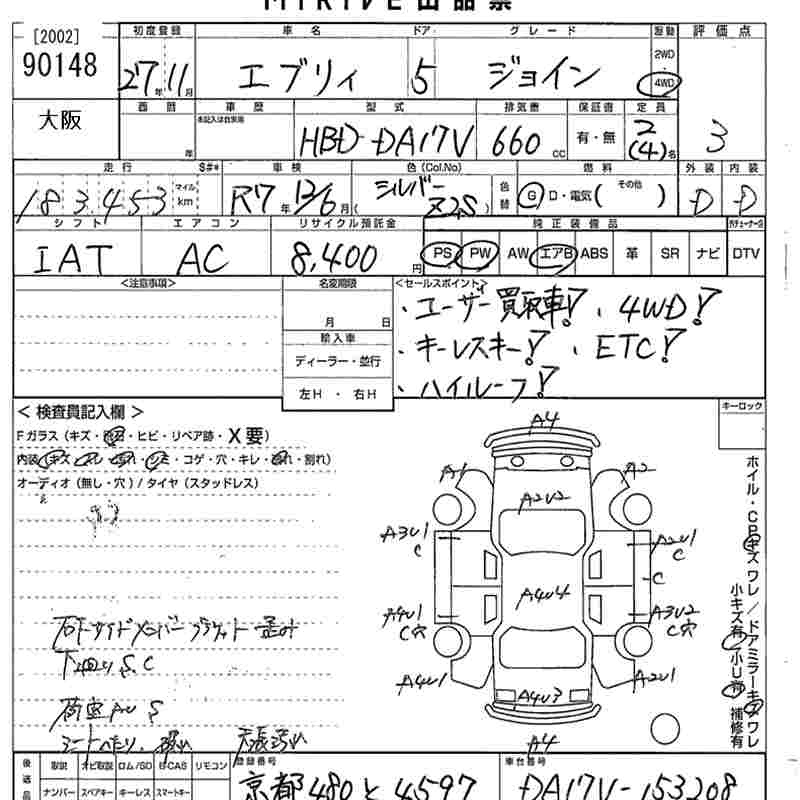 MIRIVE出品票
[2002]
90148
初度登録 車名 ドア グレード 駆動 評価点
27年11月 エブリィ 5 ジョイン 2WD 4WD
大阪
西暦 車歴 型式 排気量 保証書 定員
本記入は自家用
年 HBD-DA17V 660cc 有・無 2(4)名 3
走行 S#* 車検 色(Col.No) 燃料 外装 内装
183,453 マイル km R7年12/6月 (シルバー Z2S) 色替 G D・電気( その他 ) D D
シフト エアコン リサイクル預託金 純正装備品
IAT AC 8,400円 PS PW AW エアB ABS 革 SR ナビ DTV
<注意事項> 名変期限 <セールスポイント>
月 日
輸入車
ディーラー・並行
左H・右H
・ユーザー買取車!、4WD!
・キーレスキー!、ETC!
・ハイルーフ!
<検査員記入欄>
キーロック
Fガラス(キズ・飛石・ヒビ・リペア跡・X要)
内装(キズ・スレ・汚れ・シミ・コゲ・穴・キレ・割れ)
オーディオ(無し・穴)/タイヤ(スタッドレス)
A4
A1 A2
A2U2
A3U1 A2U1
C C
C
A4U4
A4U1 A3U2
C穴 C穴
A4U1 A2U1
A4U3
A4
ホイル・CPキズワレ/ドアミラーキズワレ
小キズ有 小U有 補修有
下回りS.C
荷室AUS
天張汚れ
後送品
取説 ナビ取説 ロム/SD B-CAS リモコン
ナンバー スペアキー キーレス スマートキー
登録番号 車台番号
京都480と4597 DA17V-153208